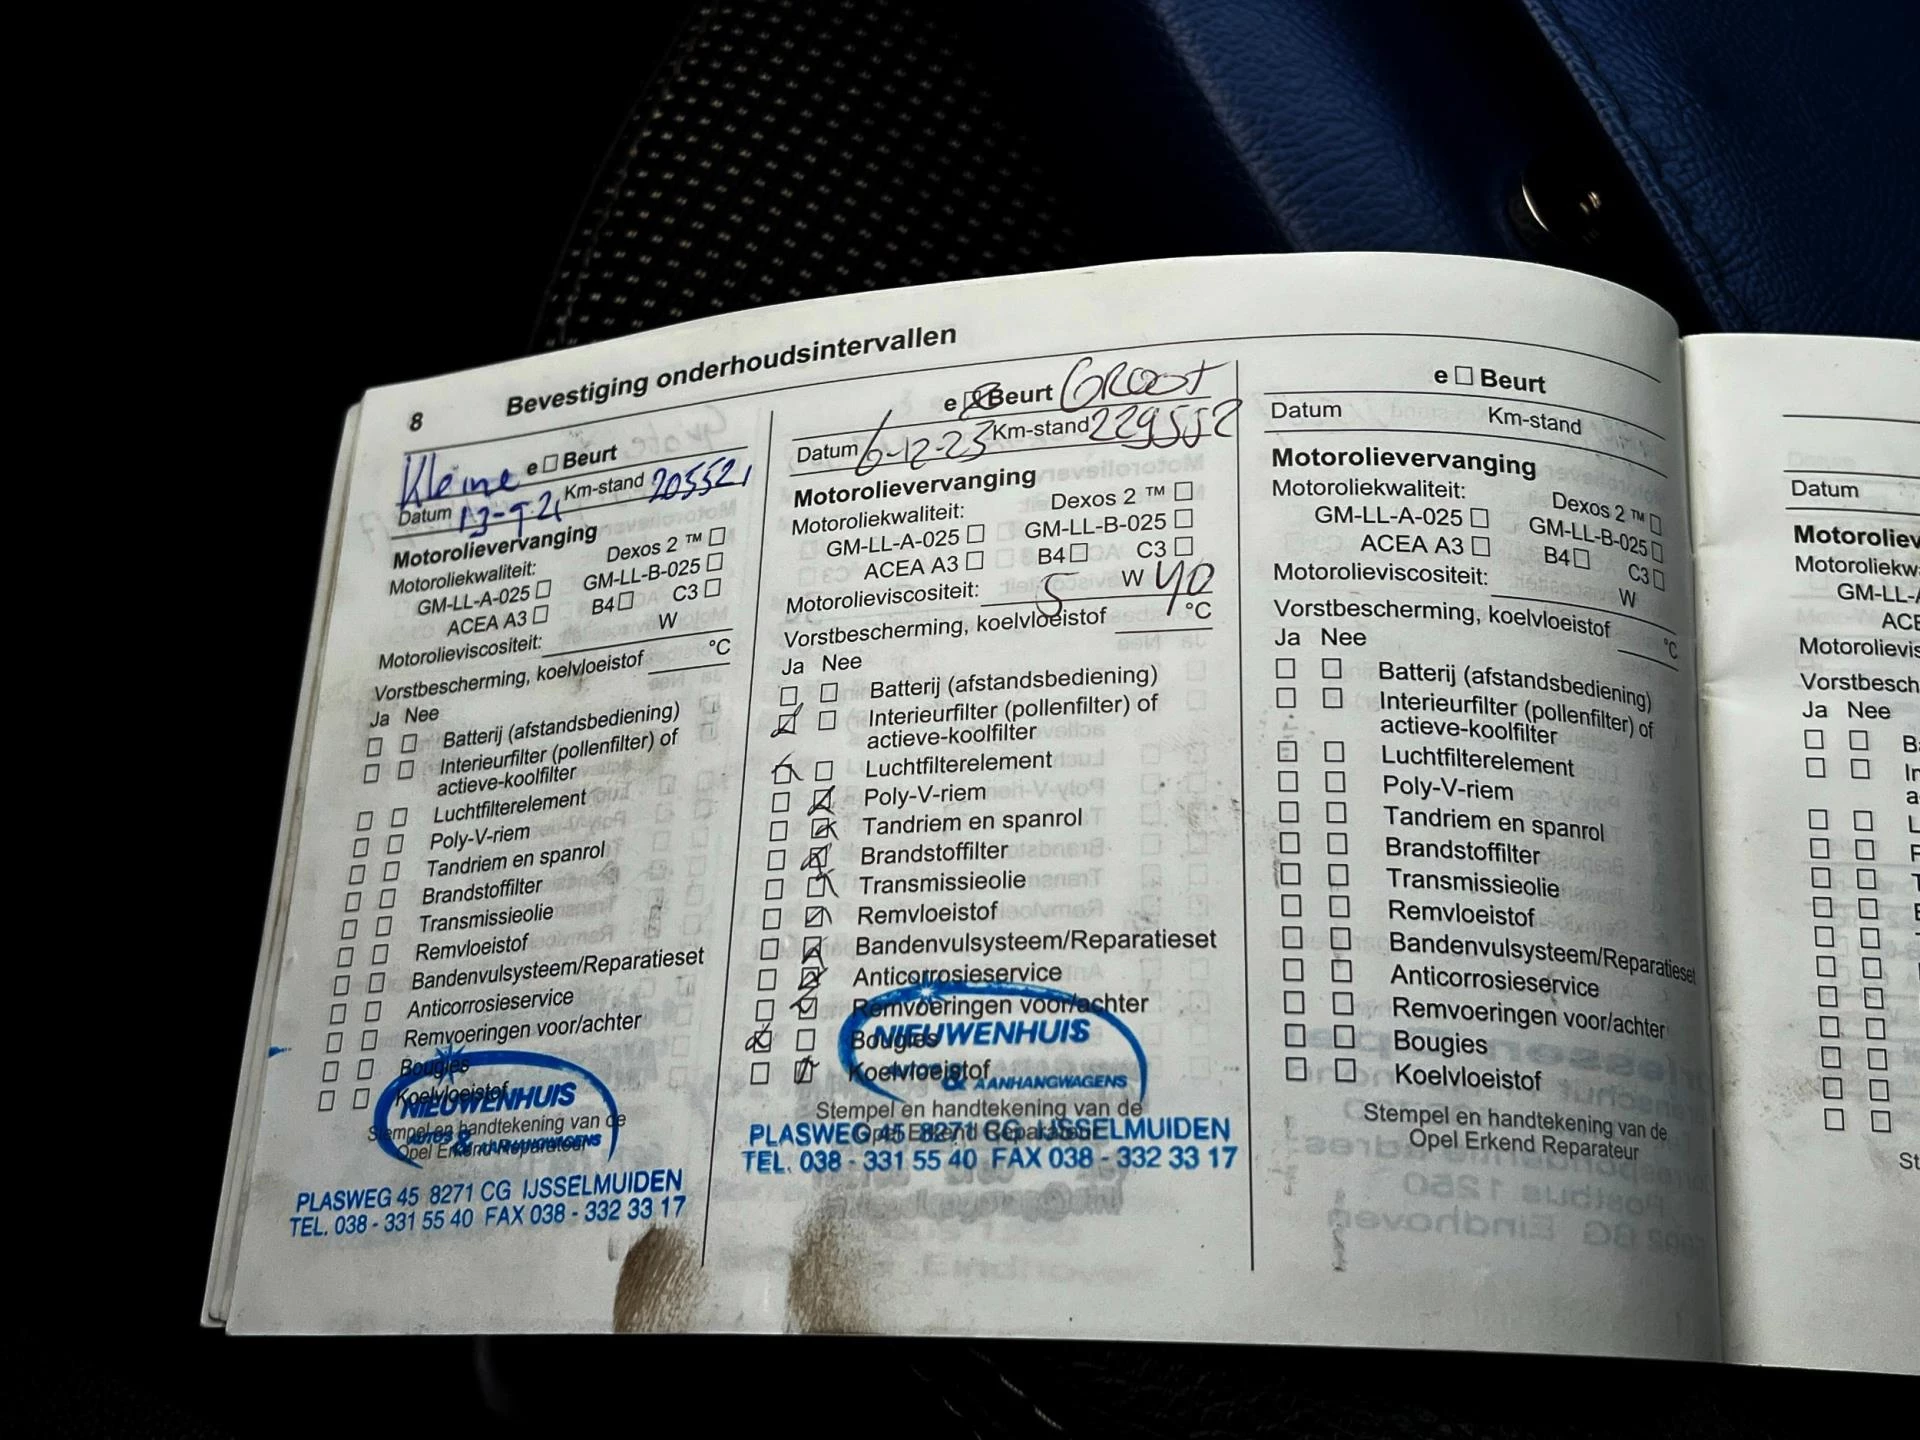 8 Bevestiging onderhoudsintervallen
Kleine e Beurt
Datum 13-9-21 Km-stand 205521
Motorolievervanging
Motoroliekwaliteit: Dexos 2 ™
GM-LL-A-025 GM-LL-B-025
ACEA A3 B4 C3
Motorolieviscositeit: W
Vorstbescherming, koelvloeistof °C
Ja Nee
Batterij (afstandsbediening)
Interieurfilter (pollenfilter) of
actieve-koolfilter
Luchtfilterelement
Poly-V-riem
Tandriem en spanrol
Brandstoffilter
Transmissieolie
Remvloeistof
Bandenvulsysteem/Reparatieset
Anticorrosieservice
Remvoeringen voor/achter
Bougies
Koelvloeistof
NIEUWENHUIS
Stempel en handtekening van de
AUTOS & AANHANGWAGENS
Opel Erkend Reparateur
PLASWEG 45 8271 CG IJSSELMUIDEN
TEL. 038 - 331 55 40 FAX 038 - 332 33 17
e Beurt GROOT
Datum 6-12-23 Km-stand 229552
Motorolievervanging
Motoroliekwaliteit: Dexos 2 ™
GM-LL-A-025 GM-LL-B-025
ACEA A3 B4 C3
Motorolieviscositeit: 5 W 40
Vorstbescherming, koelvloeistof °C
Ja Nee
Batterij (afstandsbediening)
Interieurfilter (pollenfilter) of
actieve-koolfilter
Luchtfilterelement
Poly-V-riem
Tandriem en spanrol
Brandstoffilter
Transmissieolie
Remvloeistof
Bandenvulsysteem/Reparatieset
Anticorrosieservice
Remvoeringen voor/achter
NIEUWENHUIS
Bougies
Koelvloeistof
& AANHANGWAGENS
Stempel en handtekening van de
Opel Erkend Reparateur
PLASWEG 45 8271 CG IJSSELMUIDEN
TEL. 038 - 331 55 40 FAX 038 - 332 33 17
e Beurt
Datum Km-stand
Motorolievervanging
Motoroliekwaliteit: Dexos 2 ™
GM-LL-A-025 GM-LL-B-025
ACEA A3 B4 C3
Motorolieviscositeit: W
Vorstbescherming, koelvloeistof °C
Ja Nee
Batterij (afstandsbediening)
Interieurfilter (pollenfilter) of
actieve-koolfilter
Luchtfilterelement
Poly-V-riem
Tandriem en spanrol
Brandstoffilter
Transmissieolie
Remvloeistof
Bandenvulsysteem/Reparatieset
Anticorrosieservice
Remvoeringen voor/achter
Bougies
Koelvloeistof
Stempel en handtekening van de
Opel Erkend Reparateur
Datum
Motoroliev
Motoroliekw
GM-LL-
ACE
Motorolievis
Vorstbesch
Ja Nee